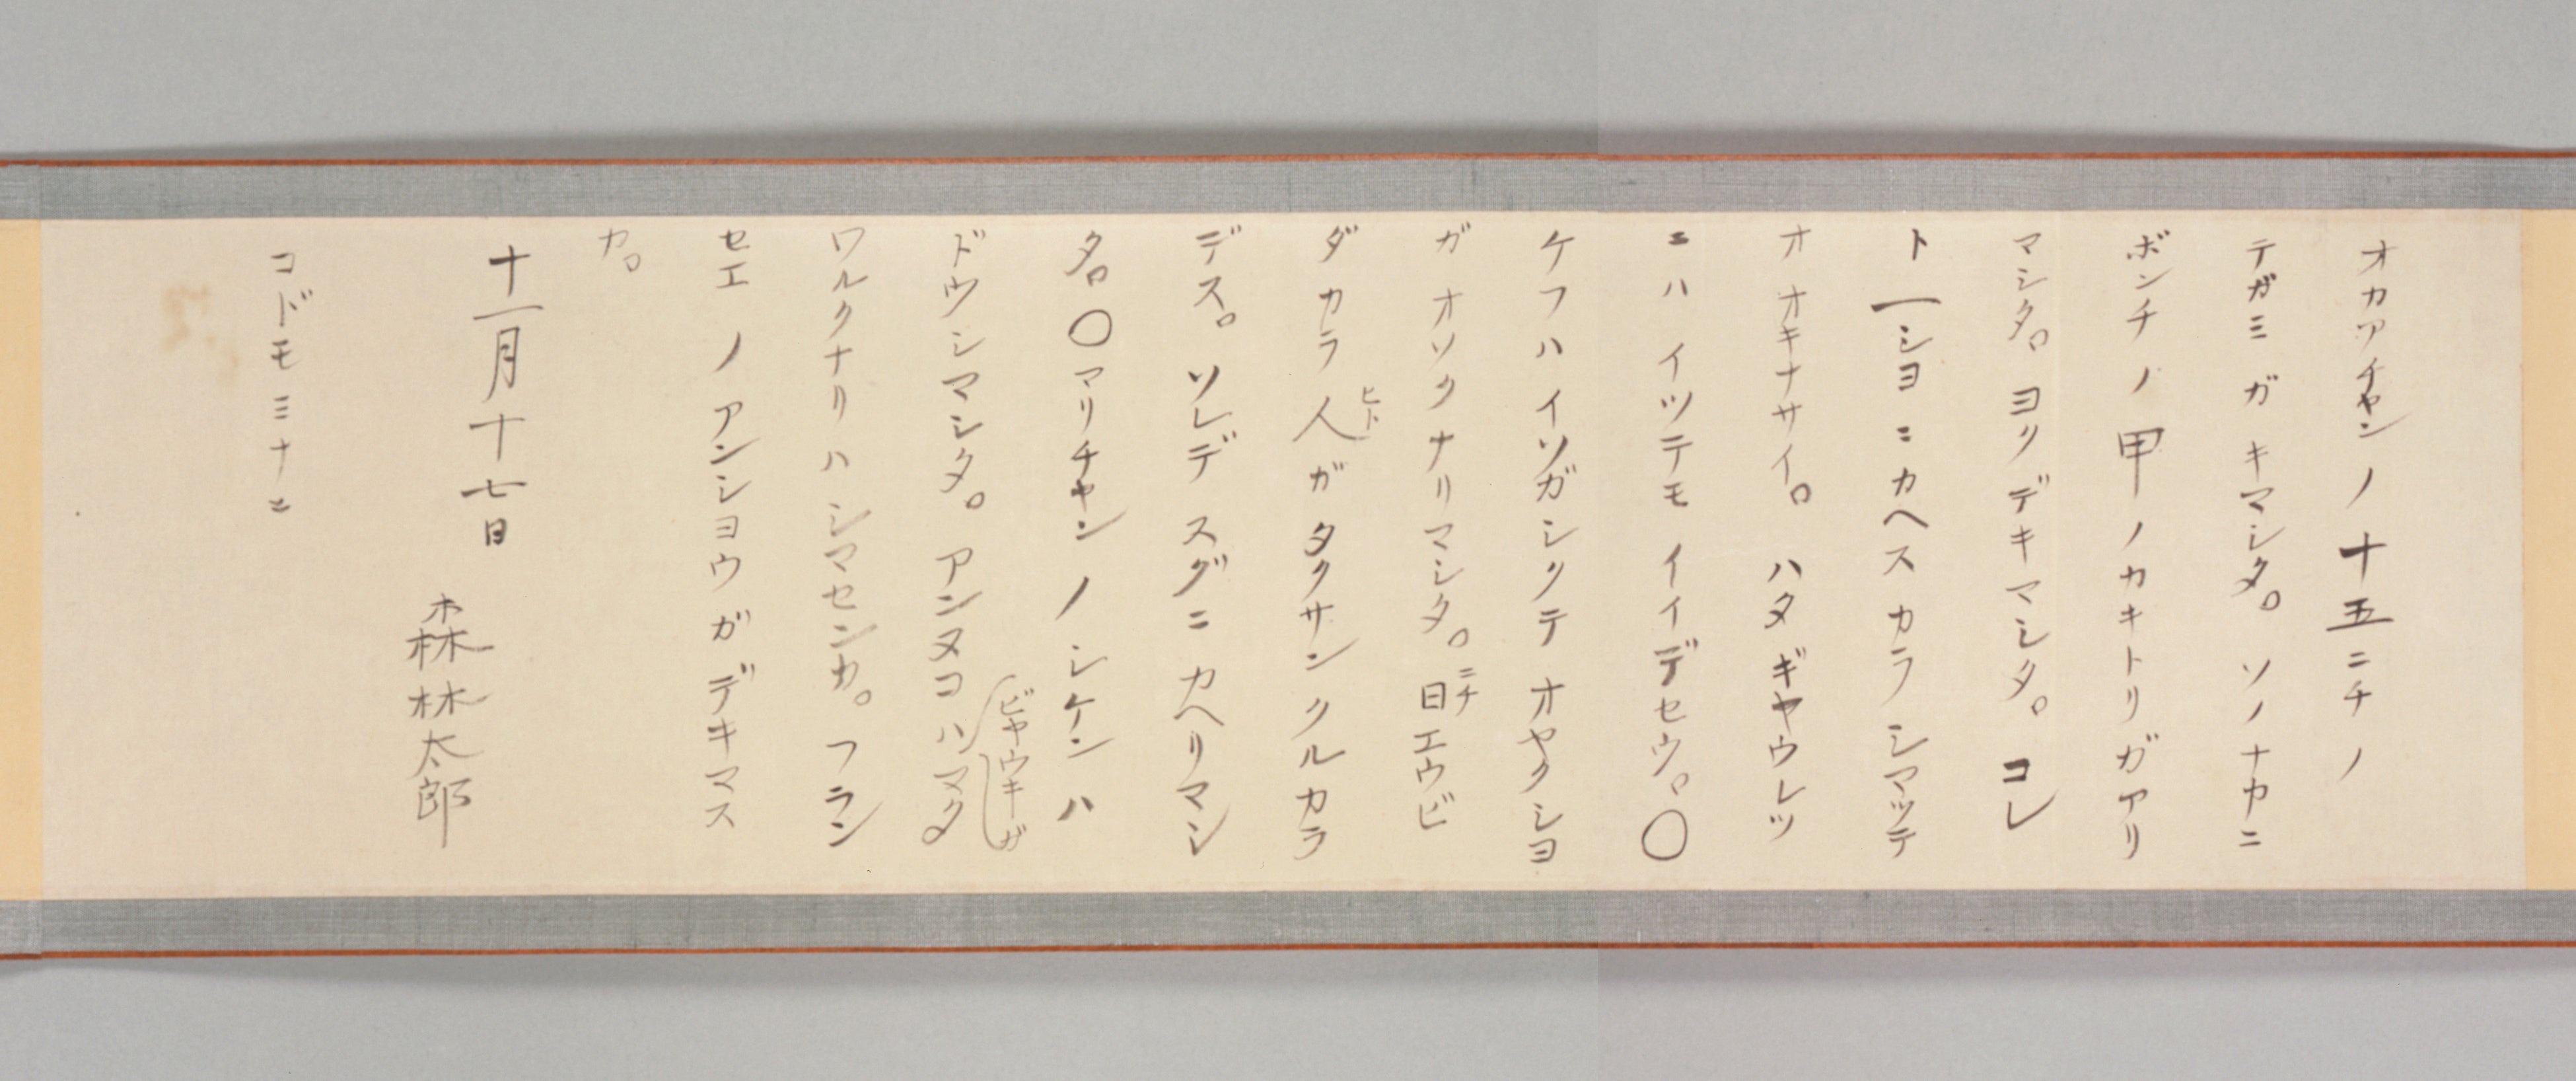 オカアチャンノ十五ニチノ
テガミガキマシタ。ソノナカニ
ボンチノ甲ノカキトリガアリ
マシタ。ヨクデキマシタ。コレ
ト一シヨニカヘスカラシマツテ
オオキナサイ。ハタギヤウレツ
ニハイツテモイイデセウ。〇
ケフハイソガシクテオヤクシヨ
ガオソクナリマシタ。日エウビ
ニチ
ダカラ人ガタクサンクルカラ
ヒト
デス。ソレデスグニカヘリマシ
タ。〇マリチヤンノシケンハ
ドウシマシタ。アンヌコハマタ
ビヤウキガ
ワルクナリハシマセンカ。フラン
セエノアンシヨウガデキマス
カ。
十一月十七日
森林太郎
コドモミナニ